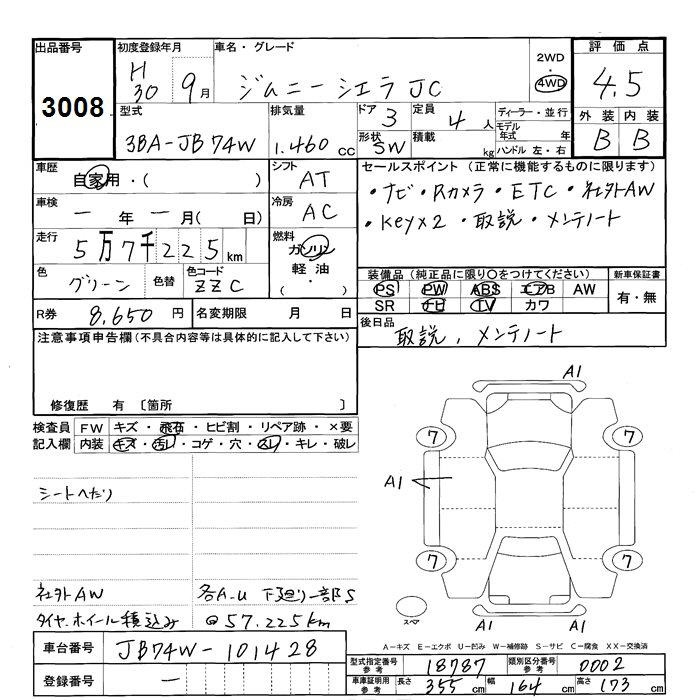 出品番号 初度登録年月 車名・グレード 2WD 評価点
3008 H30 9月 ジムニーシエラ JC 4WD 4.5
型式 排気量 ドア 3 定員 4人 ディーラー・並行 外装 内装
3BA-JB74W 1.460cc 形状 SW 積載 kg モデル年式 年 B B
ハンドル 左・右
車歴 自家用・( ) シフト AT セールスポイント (正常に機能するものに限ります)
車検 一年一月( 日) 冷房 AC ・ナビ・Rカメラ・ETC・社外AW
・Keyx2・取説・メンテノート
走行 5万7千225km 燃料 ガソリン
軽油
・( )
色 グリーン 色替 色コード ZZC
装備品 (純正品に限り○をつけてください) 新車保証書
PS PW ABS エアB AW 有・無
SR ナビ TV カワ
R券 8,650円 名変期限 月 日
後日品 取説, メンテノート
注意事項申告欄(不具合内容等は具体的に記入して下さい)
修復歴 有 〔箇所 〕
検査員 FW キズ・飛石・ヒビ割・リペア跡・×要
記入欄 内装 キズ・汚レ・コゲ・穴・スレ・キレ・破レ
A1
7 7
A1
7 7
スペア
A1 A1
シートへたり
社外AW 各A-U 下廻り一部S
タイヤ.ホイール積込み @57.225km
A-キズ E-エクボ U-凹み W-補修跡 S-サビ C-腐食 XX-交換済
車台番号 JB74W-101428
型式指定番号 参考 18787 類別区分番号 参考 0002
登録番号 一
車庫証明用 参考 長さ 355cm 幅 164cm 高さ 173cm